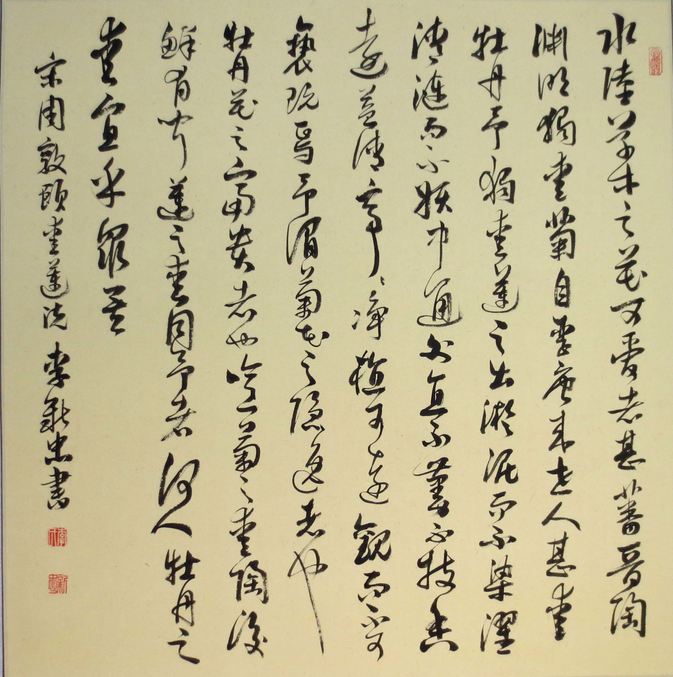 水陸草木之花可愛者甚蕃晉陶
淵明獨愛菊自李唐来世人甚愛
牡丹予獨愛蓮之出淤泥而不染濯
清漣而不妖中通外直不蔓不枝香
遠益清亭〻淨植可遠觀而不可
褻玩焉予謂菊花之隱逸者也
牡丹花之富貴者也噫菊之愛陶後
鮮有聞蓮之愛同予者何人牡丹之
愛宜乎衆矣
宋周敦頤愛蓮说 李忠書